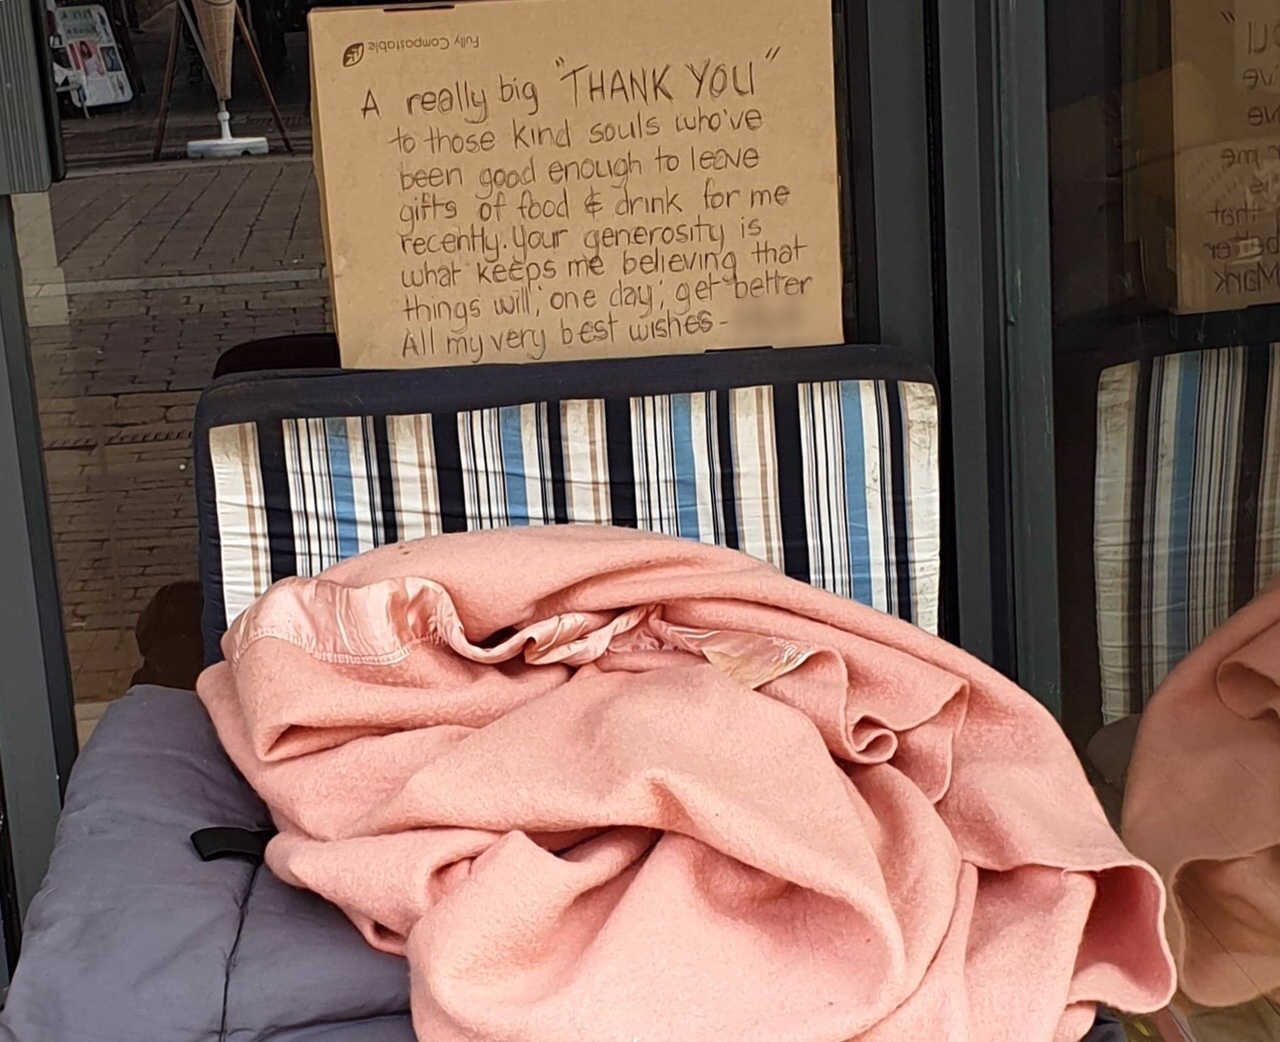 Fully Compostable
A really big "THANK YOU"
to those kind souls who've
been good enough to leave
gifts of food & drink for me
recently. Your generosity is
what keeps me believing that
things will, 'one day', get better
All my very best wishes -